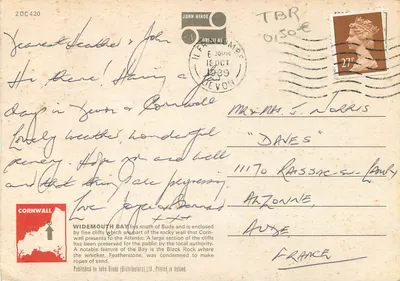 2 DC 420
JOHN HINDE
TBR
0,50€
ILFRACOMBE
16 OCT
1989
DEVON
27P
Dearest Heather & John
Hi there! Having a few
days in Devon & Cornwall
Lovely weather, wonderful
scenery. Hope you are well
and that things are progressing.
Love Joyce & Bernard
xx
Mr & Mrs J. Norris
"DAVES"
11170 RAISSAC-SUR-LAMPY
ALZONNE,
AUDE,
FRANCE
CORNWALL
WIDEMOUTH BAY lies south of Bude and is enclosed
by fine cliffs which are part of the rocky wall that Corn-
wall presents to the Atlantic. A large section of the cliffs
has been preserved for the public by the local authority.
A notable feature of the Bay is the Black Rock where
the wrecker, Featherstone, was condemned to make
ropes of sand.
Published by John Hinde (Distributors) Ltd. Printed in Ireland